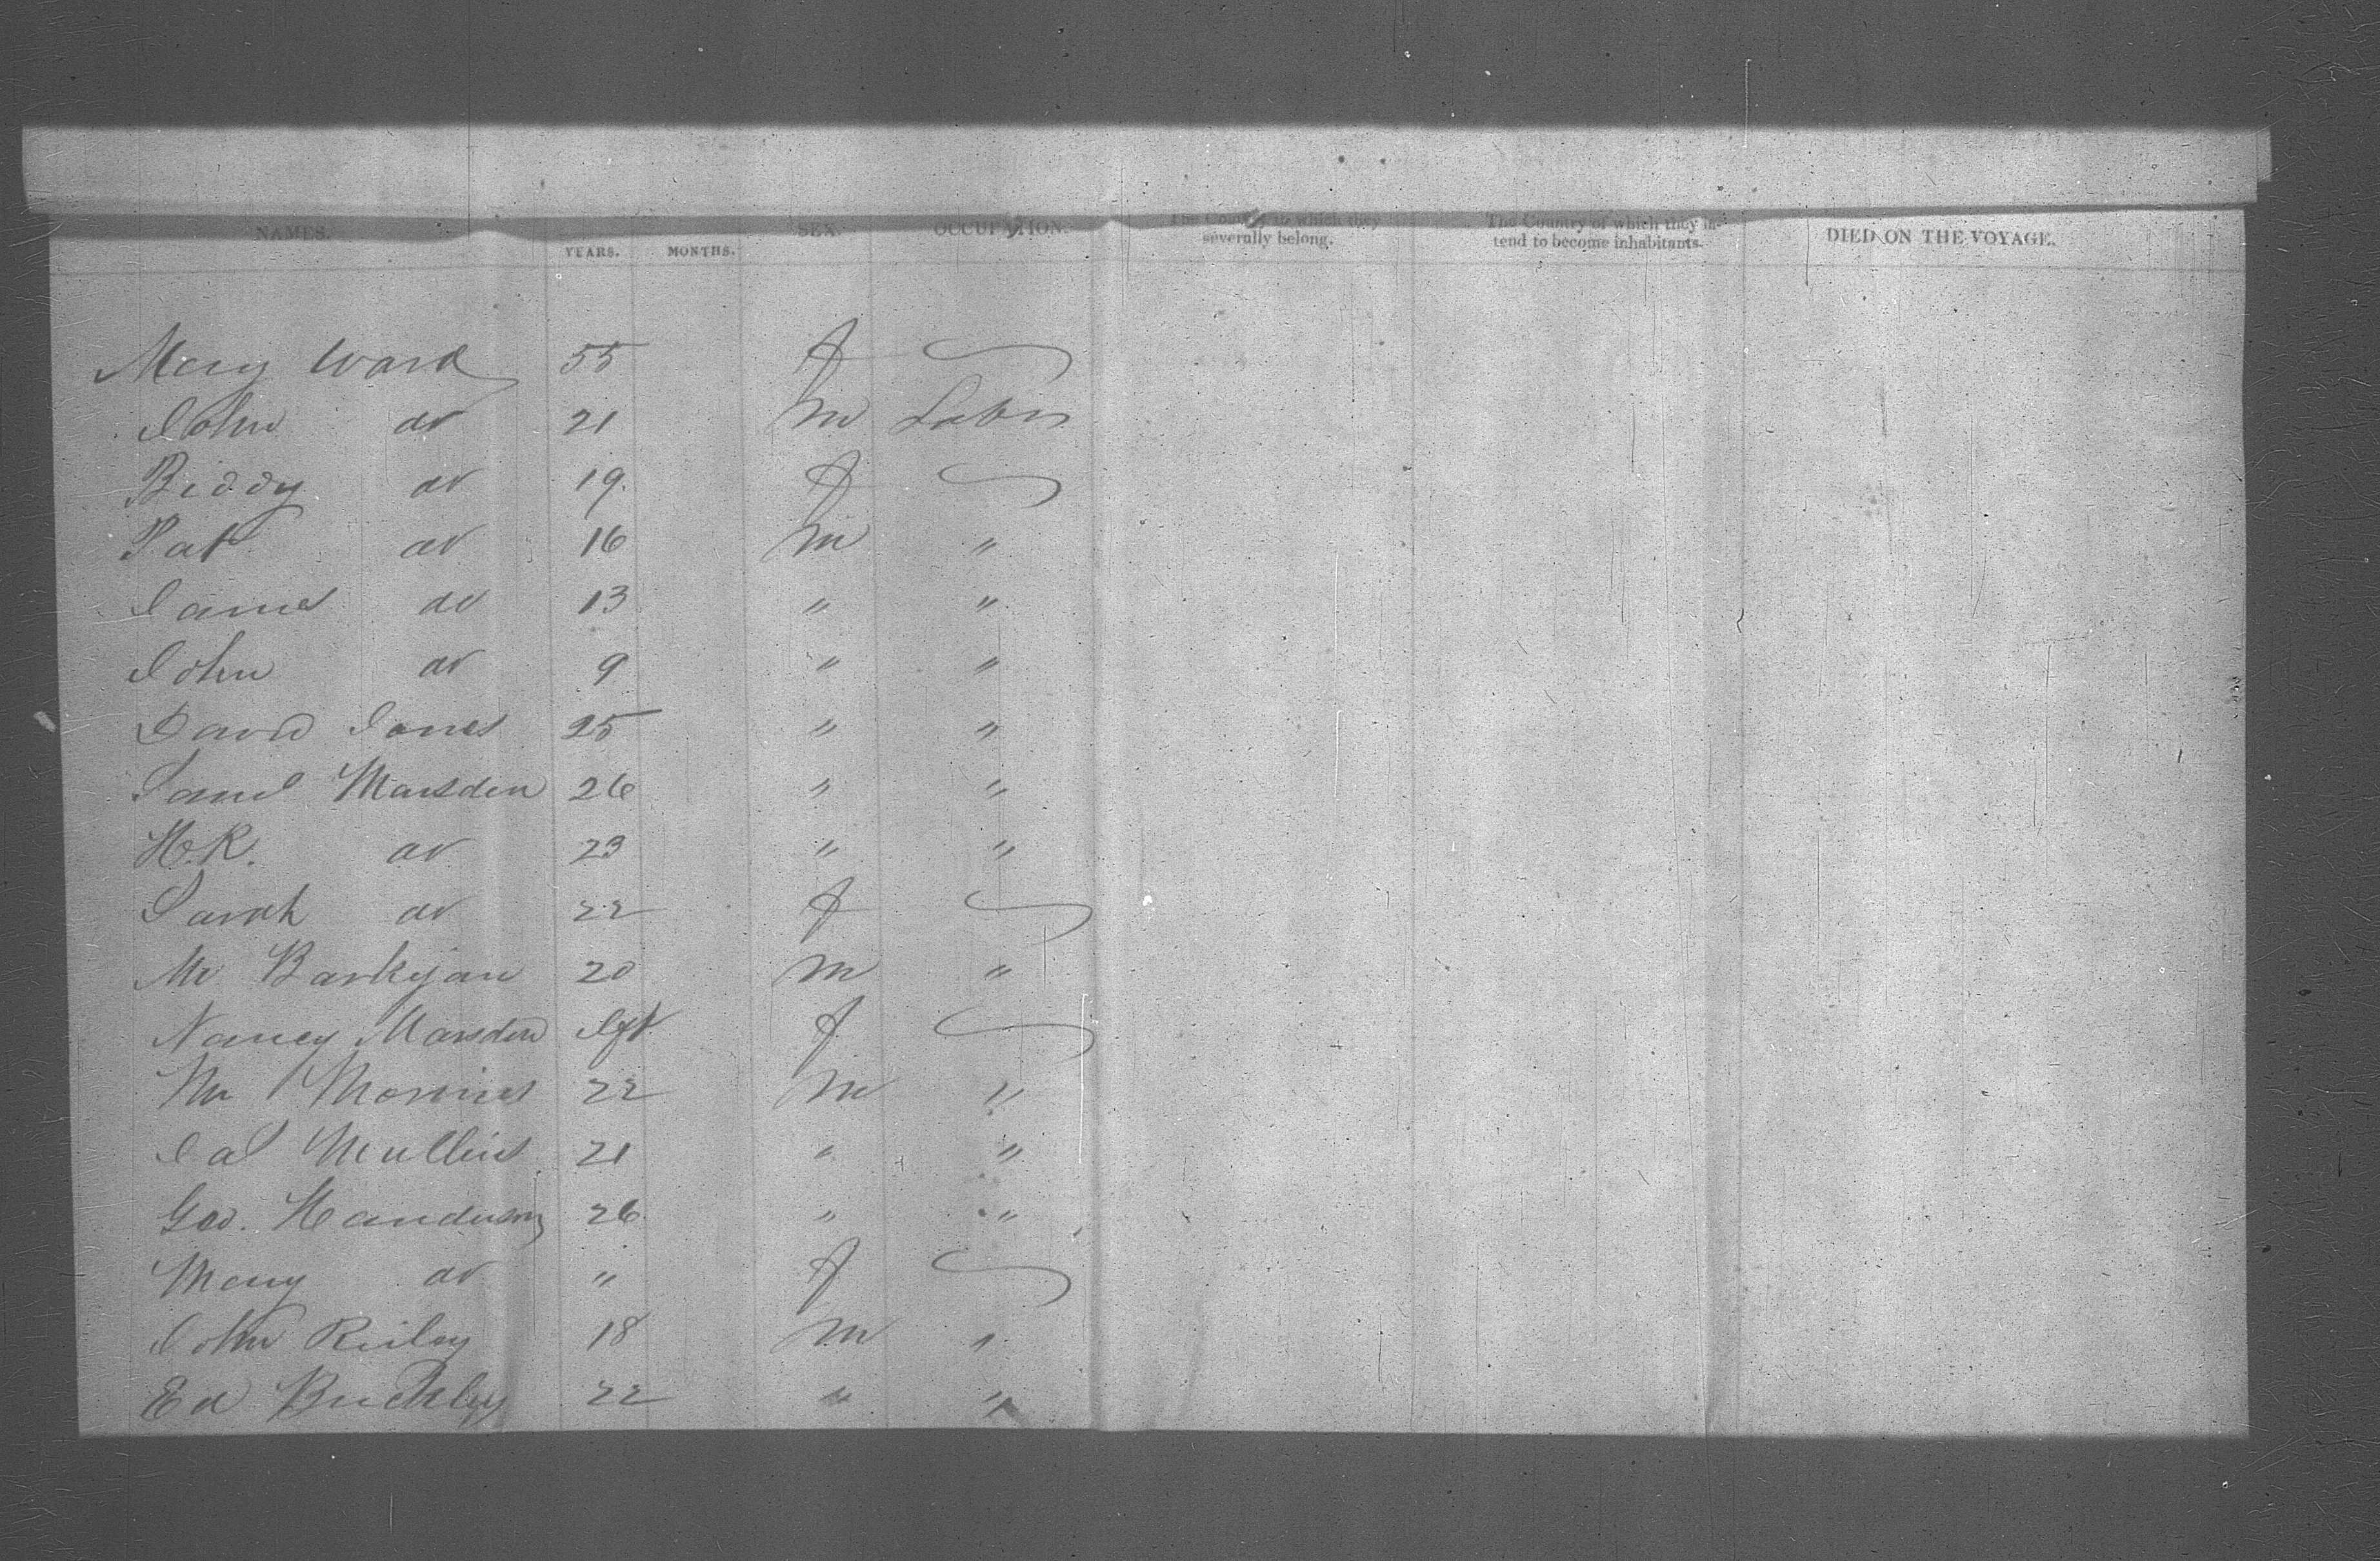 NAMES. YEARS. MONTHS. SEX. OCCUPATION. The Country to which they severally belong. The Country of which they intend to become inhabitants. DIED ON THE VOYAGE.
Mary Ward 55 f
John do 21 m Labor
Biddy do 19 f
Pat do 16 m "
James do 13 " "
John do 9 " "
David Jones 25 " "
Saml Marsden 26 " "
H.R. do 23 " "
Sarah do 22 f
Mr 20 m "
Nancy Marsden Ift f
Morris 22 m "
Jas Mullins 21 " "
Geo. Handerson 26 " "
Mary do " f
John Reiley 18 m "
Ed Buckley 22 " "